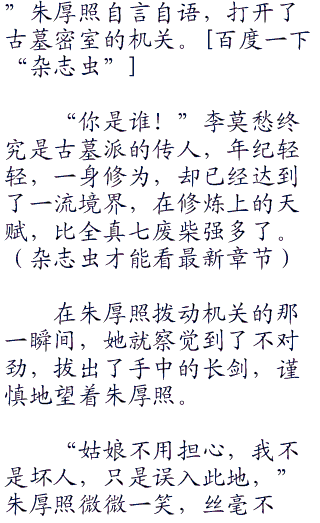 ”朱厚照自言自语，打开了
古墓密室的机关。[百度一下
“杂志虫”]
“你是谁！”李莫愁终
究是古墓派的传人，年纪轻
轻，一身修为，却已经达到
了一流境界，在修炼上的天
赋，比全真七废柴强多了。
（杂志虫才能看最新章节）
在朱厚照拨动机关的那
一瞬间，她就察觉到了不对
劲，拔出了手中的长剑，谨
慎地望着朱厚照。
“姑娘不用担心，我不
是坏人，只是误入此地，”
朱厚照微微一笑，丝毫不